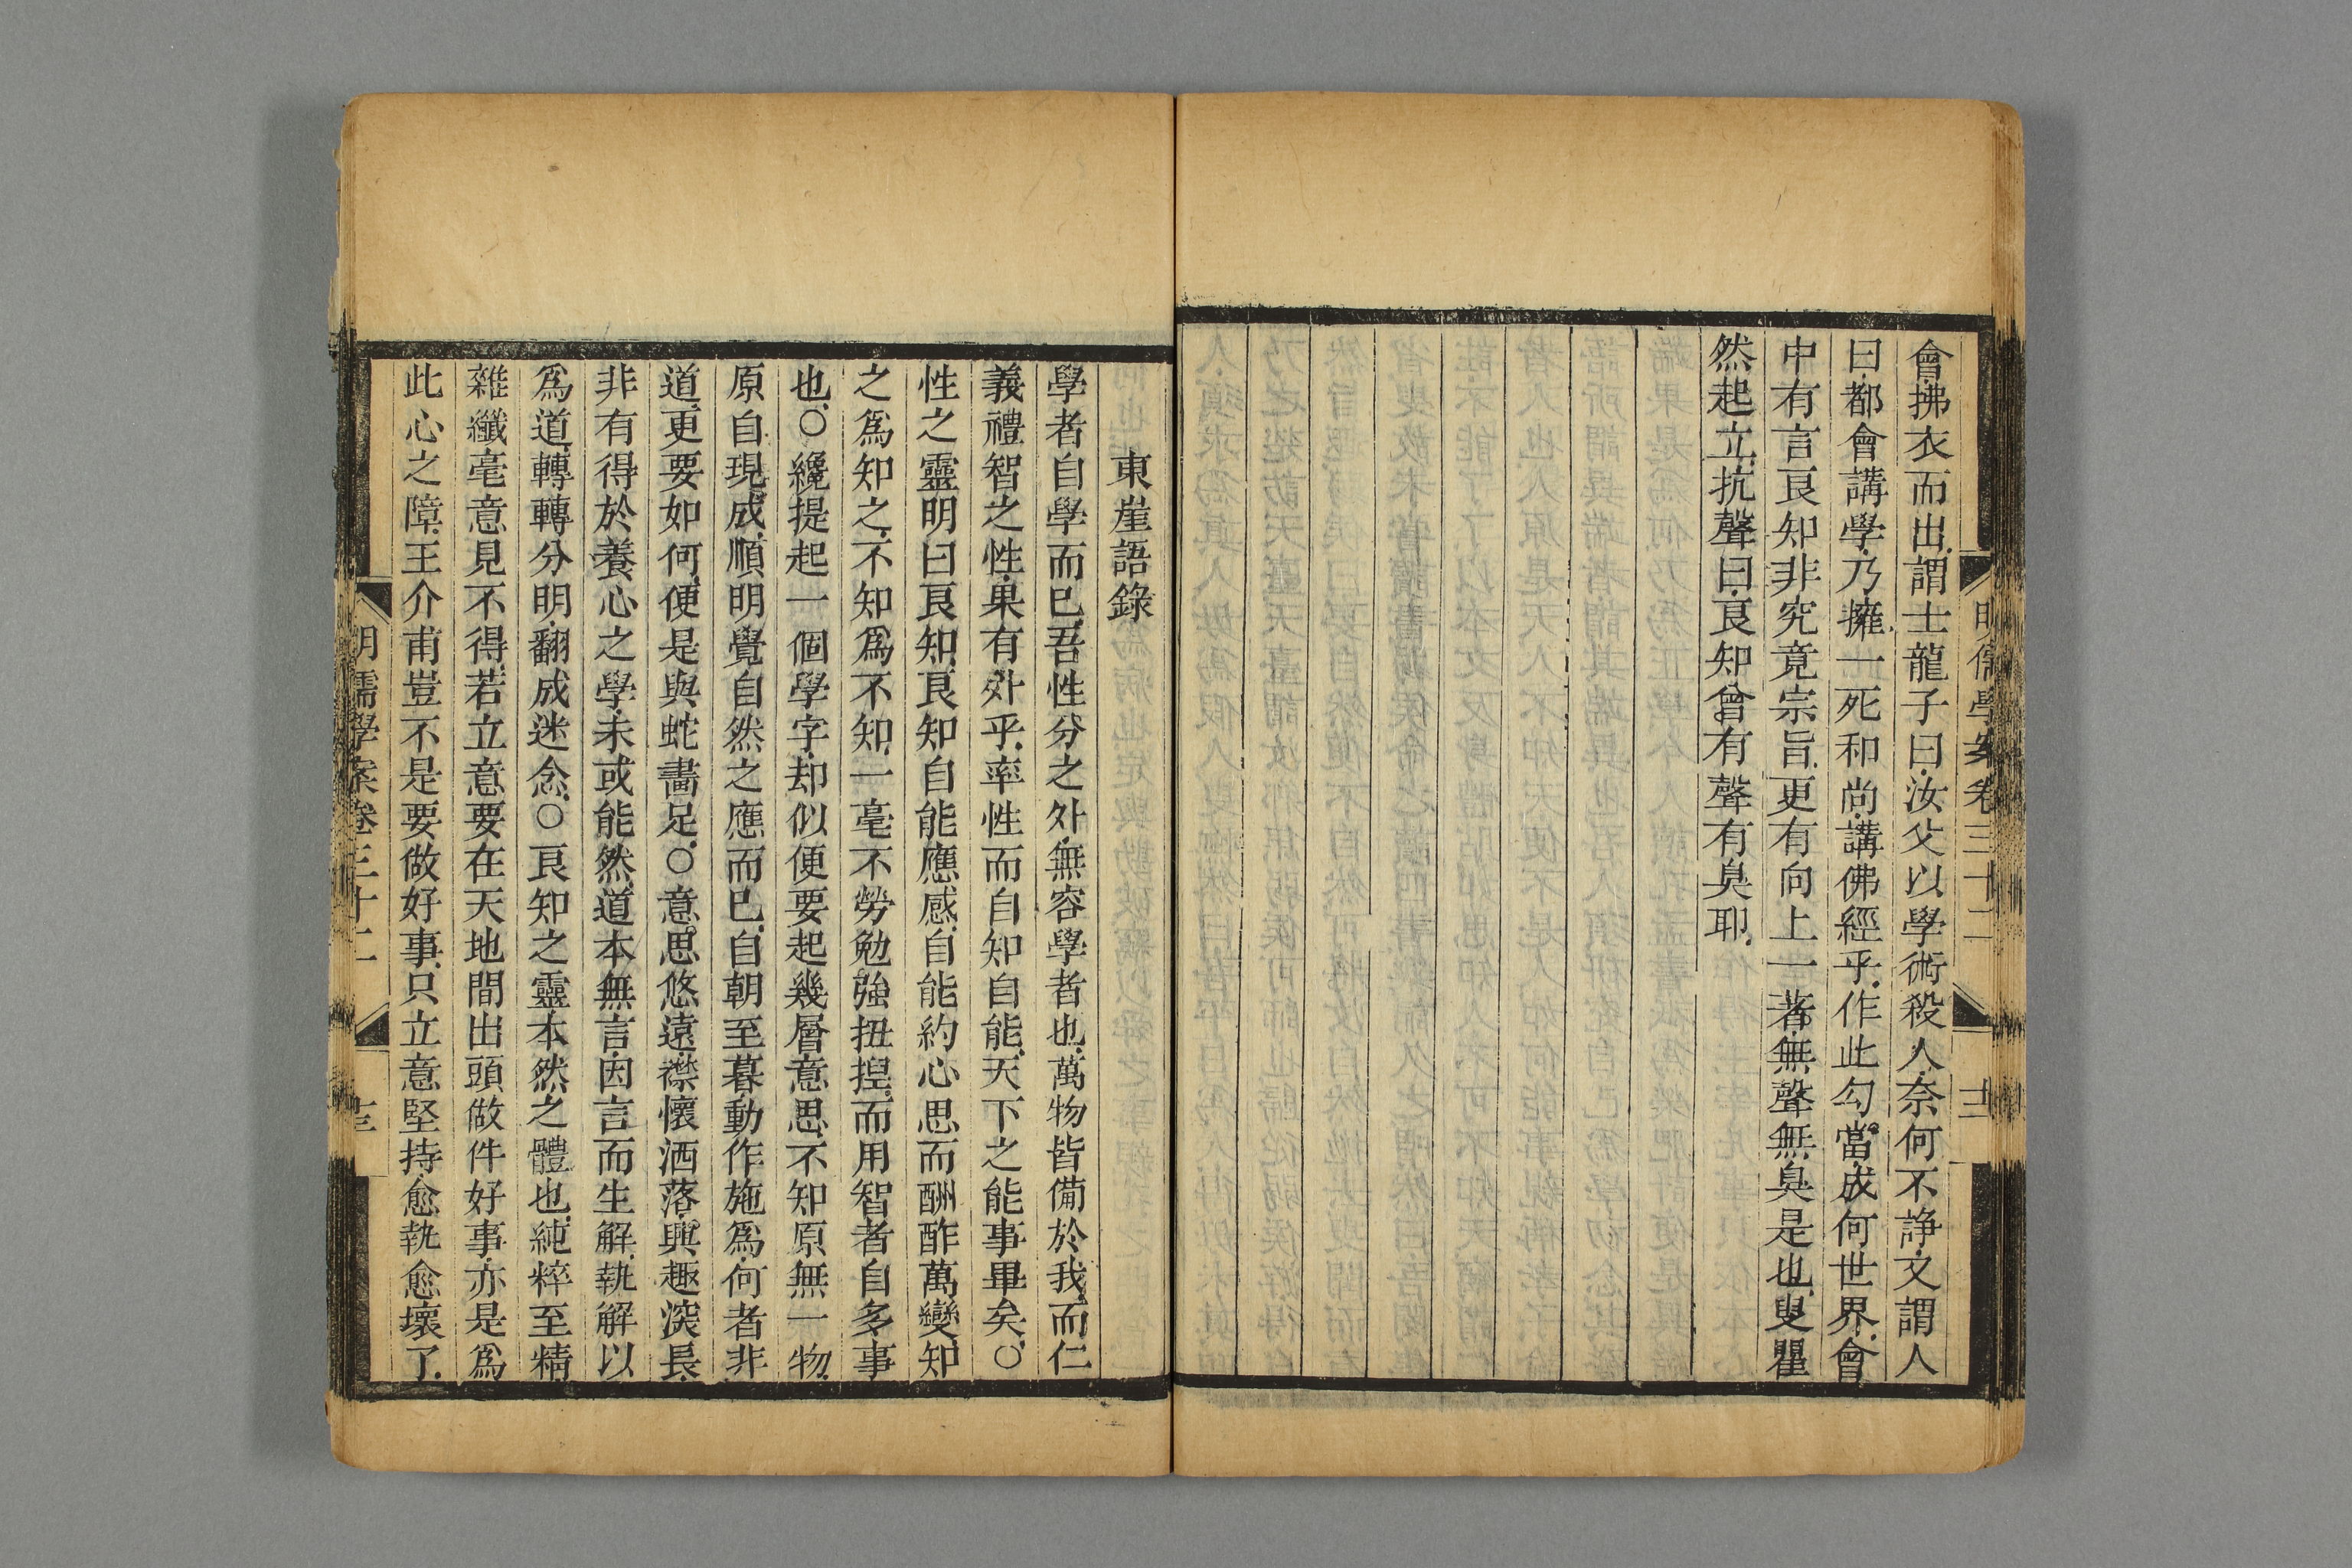 會拂衣而出謂士龍子曰汝父以學術殺人奈何不諍文謂人
曰都會講學乃擁一死和尚講佛經乎作此勾當成何世界會
中有言良知非究竟宗旨更有向上一著無聲無臭是也叟瞿
然起立抗聲曰良知曾有聲有臭耶
明儒學案卷三十二
東崖語錄
學者自學而已吾性分之外無容學者也萬物皆備於我而仁
義禮智之性果有外乎率性而自知自能天下之能事畢矣○
性之靈明曰良知良知自能應感自能約心思而酬酢萬變知
之爲知之不知爲不知一毫不勞勉強扭揑而用智者自多事
也○纔提起一個學字却似便要起幾層意思不知原無一物
原自現成順明覺自然之應而已自朝至暮動作施爲何者非
道更要如何便是與蛇畵足○意思悠遠襟懷洒落興趣深長
非有得於養心之學未或能然道本無言因言而生解執解以
爲道轉轉分明翻成迷念○良知之靈本然之體也純粹至精
雜纖毫意見不得若立意要在天地間出頭做件好事亦是爲
此心之障王介甫豈不是要做好事只立意堅持愈執愈壞了
明儒學案卷三十二